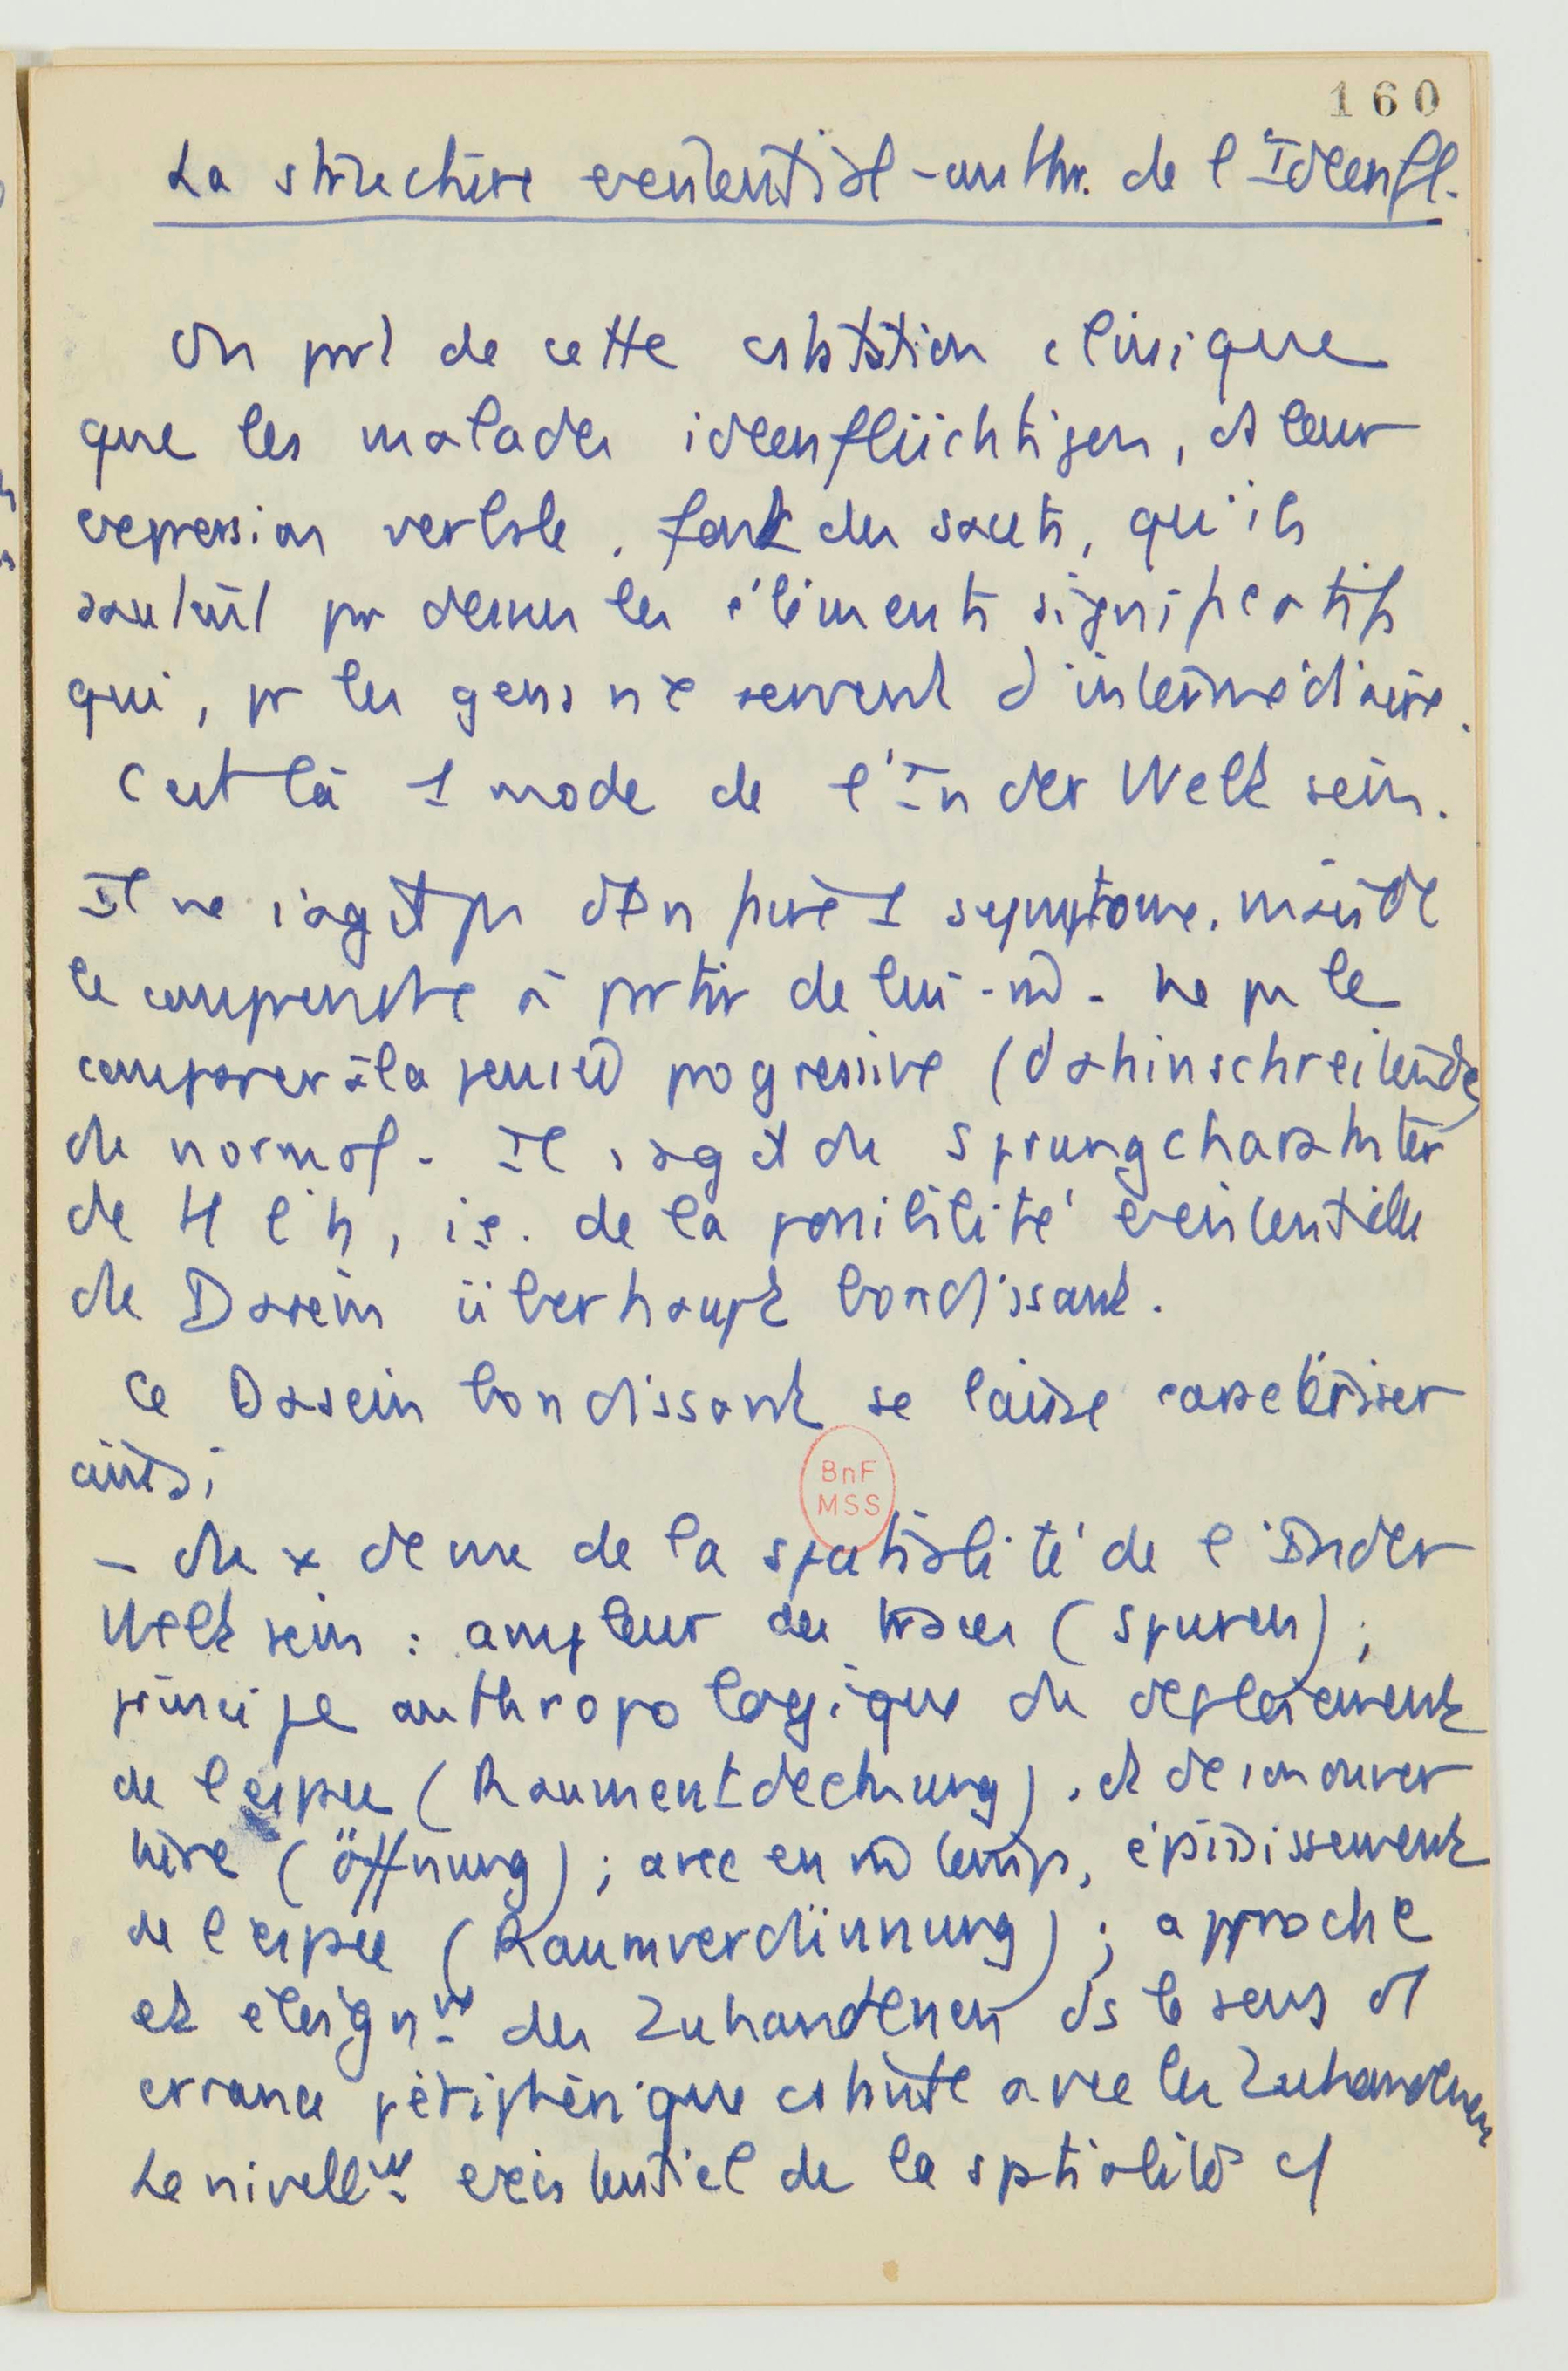 160
La structure existential-anthr. de l'Ideenfl.
On prt de cette cstatation clinique
que les malades ideenflüchtigen, et leur
expression verbale, font des sauts, qu'ils
sautent pr dessus les éléments significatifs
qui, pr les gens nx servent d'intermédiaire.
C'est là 1 mode de l'In der Welt sein.
Il ne s'agit ps d'en faire 1 symptome, mais de
le comprendre à partir de lui-m̂. Ne ps le
comparer à la pensée progressive (dahinschreibende)
du normal. Il s'agit du Sprungcharakter
de H lih, i.e. de la possibilité existentielle
du Dasein überhaupt bondissant.
Ce Dasein bondissant se laisse caractériser
ainsi
- du x de vue de la spatialité de l'In der
Welt sein : ampleur des traces (Spuren) ;
principe anthropologique du déploiement
de l'espace (Raumentdeckung), et de son ouver
ture (Öffnung) ; avec en m̂ temps, épaississement
de l'espace (Raumverdünnung) ; approche
et éloignt des Zuhandenen ds le sens d'
errance périphérique cstante avec les Zuhandenen
Le nivellt existentiel de la sptialité c/
BnF
MSS